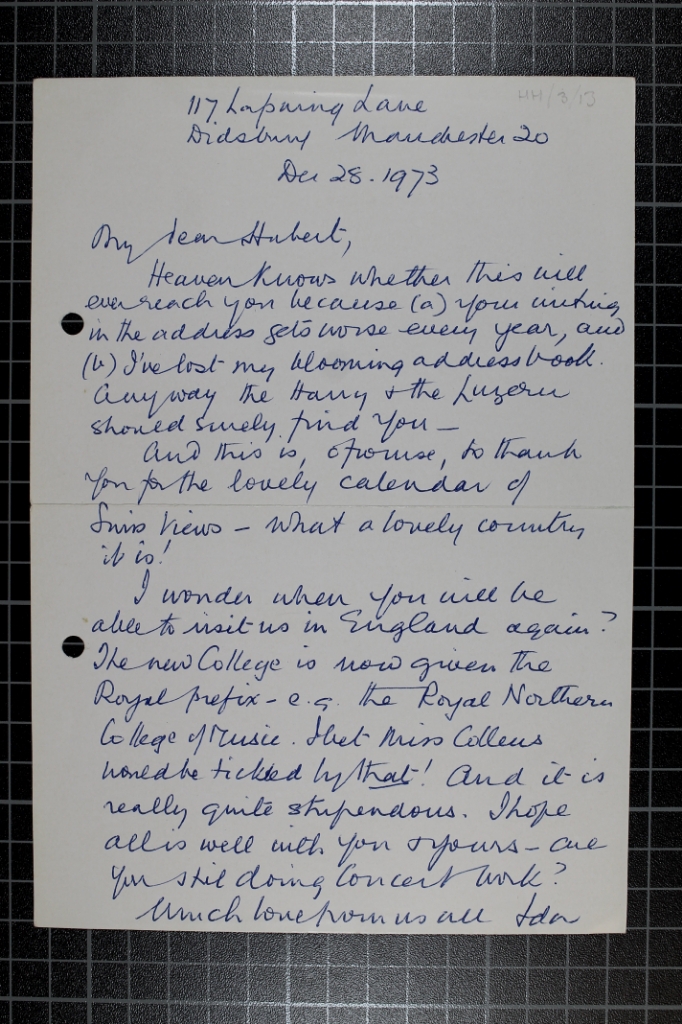 HH/8/13
117, Lapwing Lane
Didsbury Manchester 20
Dec 28. 1973
My dear Hubert,
Heaven knows whether this will
ever reach you because (a) your writing
in the address gets worse every year, and
(b) I've lost my blooming address book.
Anyway the Harry & the Luzern
should surely find you —
And this is, of course, to thank
you for the lovely calendar of
Swiss Views — what a lovely country
it is!
I wonder when you will be
able to visit us in England again?
The new College is now given the
Royal prefix — e.g. the Royal Northern
College of Music. I bet Miss Collens
would be tickled by that! And it is
really quite stupendous. I hope
all is well with you & yours — are
you still doing Concert work?
Much love from us all Ida